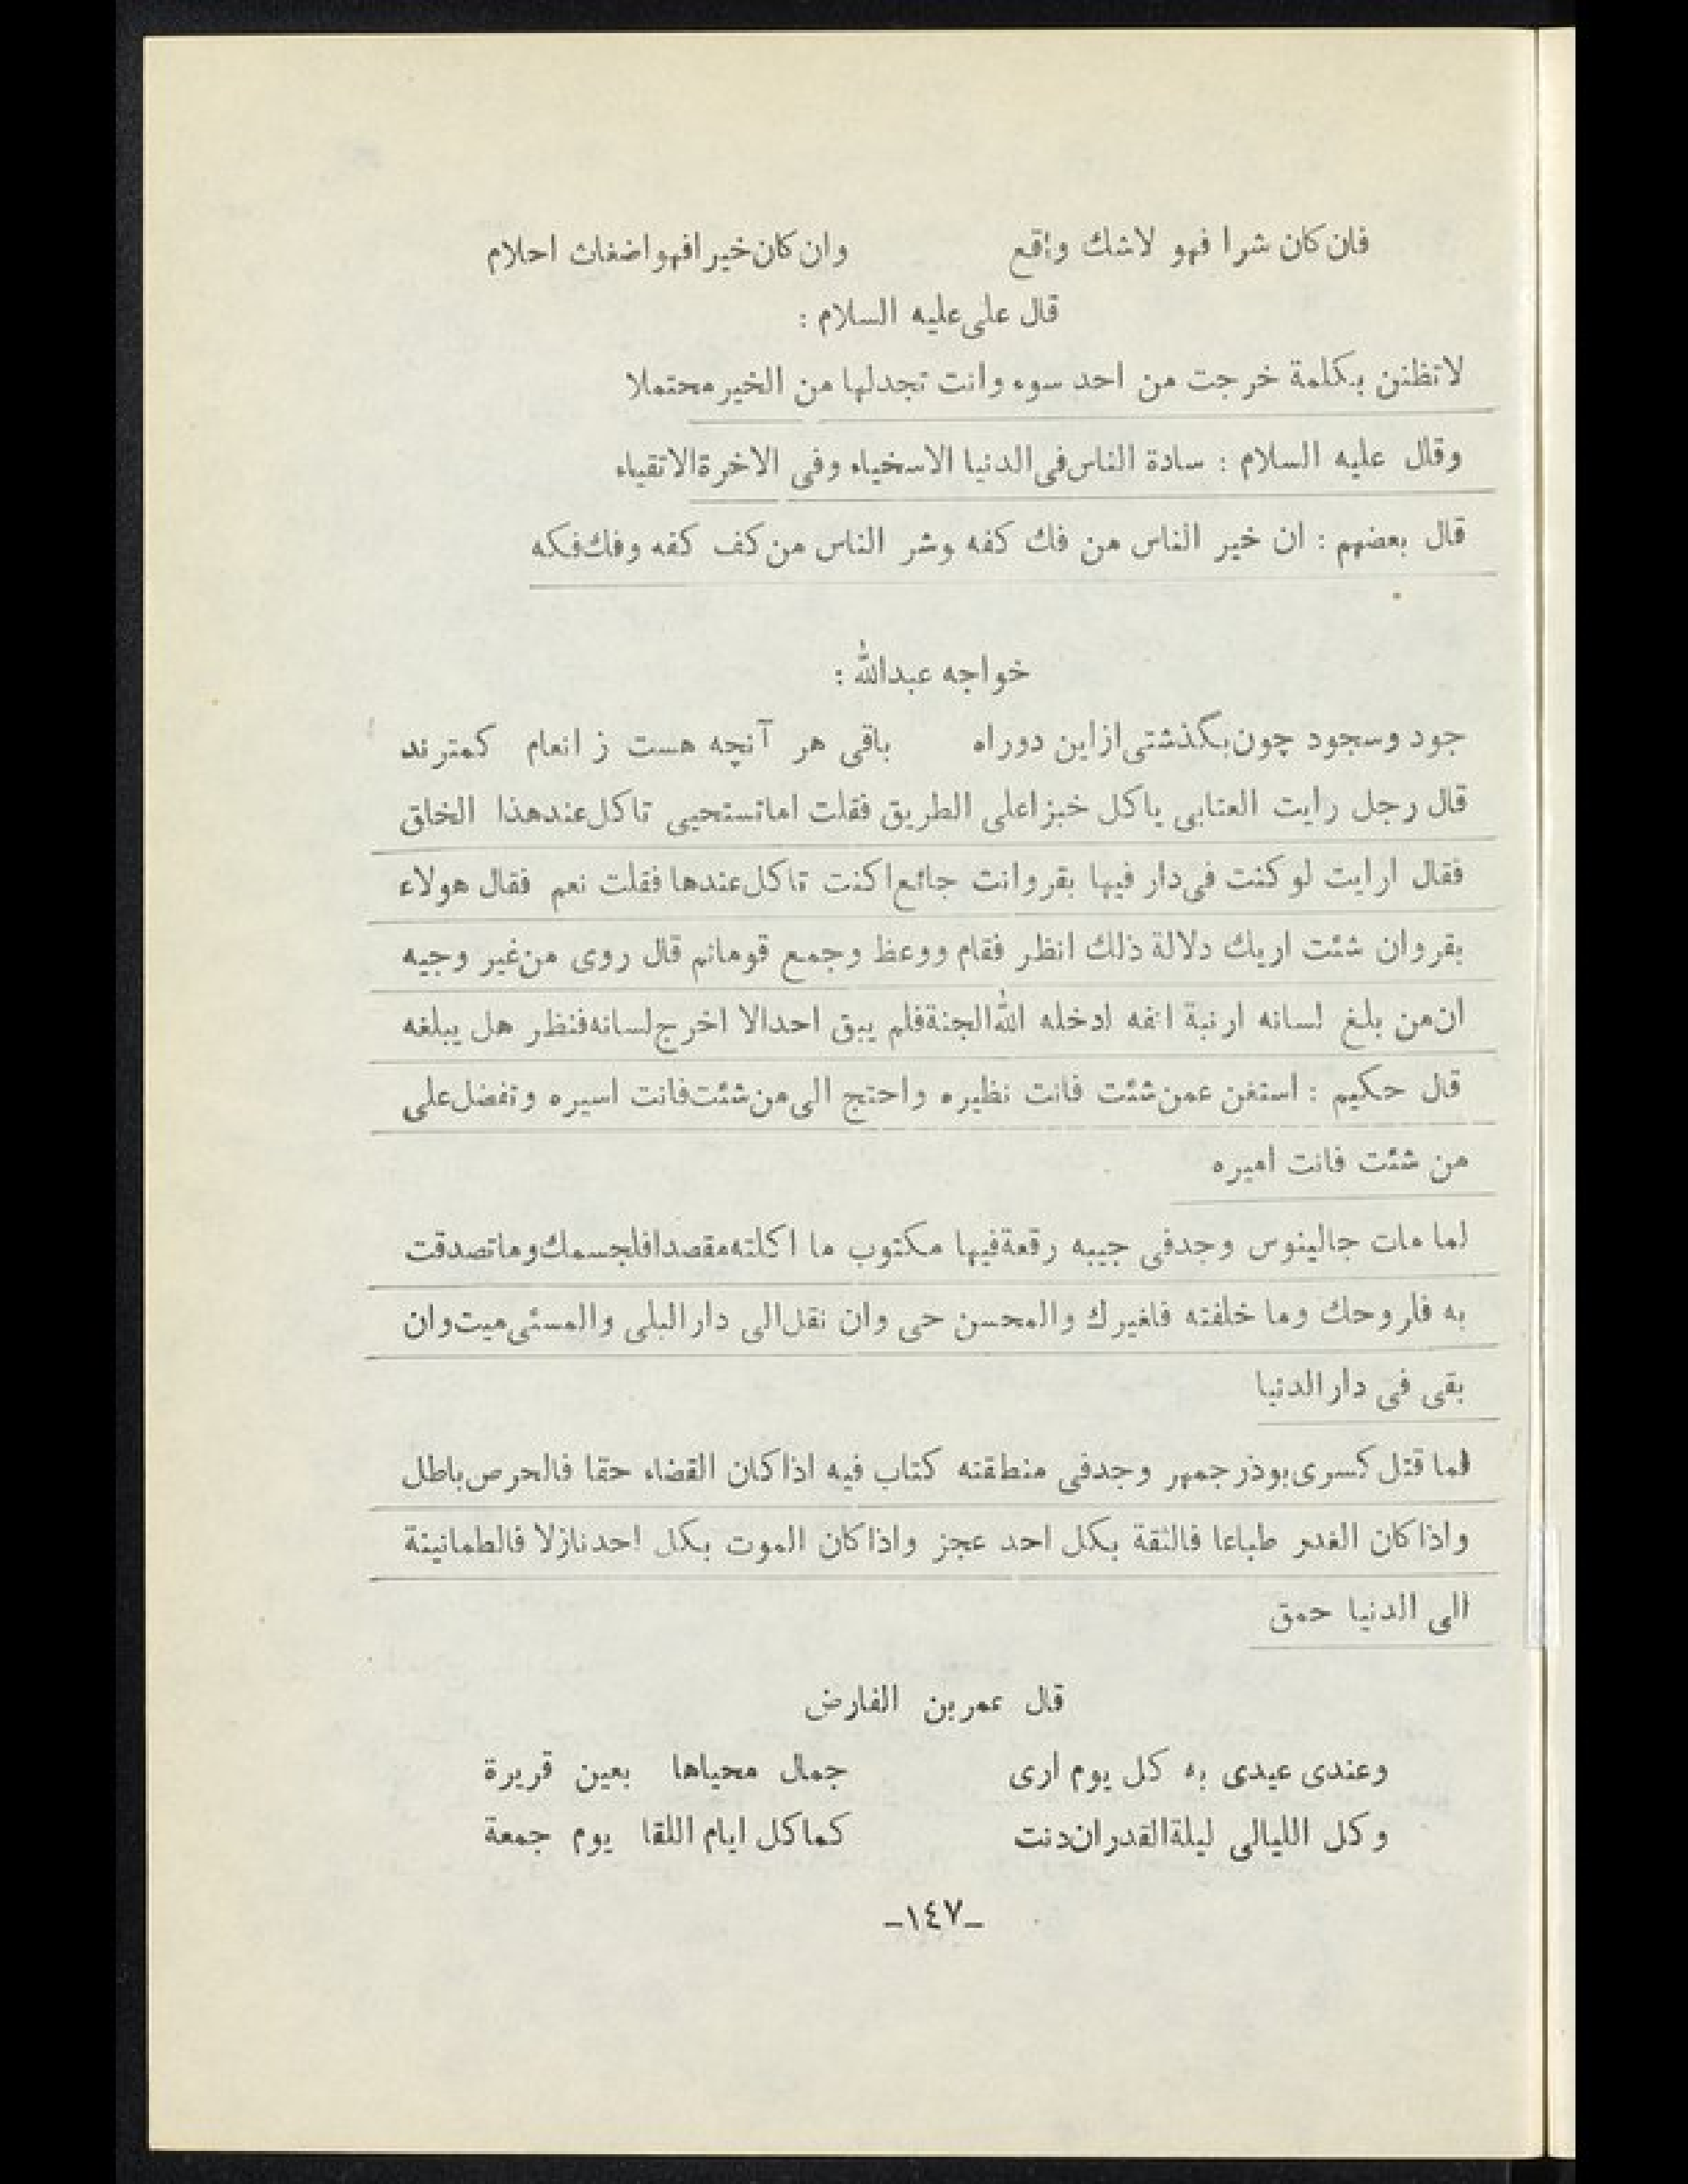 فان كان شرا فهو لاشك واقع وان كان خيرا فهو اضغاث احلام
قال على عليه السلام :
لا تظنن بكلمة خرجت من احد سوء وانت تجد لها من الخير محتملا
وقال عليه السلام : سادة الناس فى الدنيا الاسخياء وفى الاخرة الاتقياء
قال بعضهم : ان خير الناس من فك كفه وشر الناس من كف كفه وفك فكه
خواجه عبدالله :
جود وسجود چون بگذشتى از اين دوراه باقى هر آنچه هست ز انعام كمترند
قال رجل رايت العتابى ياكل خبزا على الطريق فقلت اما تستحيى تاكل عند هذا الخلق
فقال ارايت لو كنت فى دار فيها بقر وانت جائعا كنت تاكل عندها فقلت نعم فقال هولاء
بقر وان شئت اريك دلالة ذلك انظر فقام ووعظ وجمع قوما نم قال روى من غير وجيه
ان من بلغ لسانه ارنبة انفه ادخله الله الجنة فلم يبق احدا لا اخرج لسانه فنظر هل يبلغه
قال حكيم : استغن عمن شئت فانت نظيره واحتج الى من شئت فانت اسيره وتفضل على
من شئت فانت اميره
لما مات جالينوس وجد فى جيبه رقعة فيها مكتوب ما اكلته مقصدا فلجسمك وما تصدقت
به فلروحك وما خلفته فلغيرك والمحسن حى وان نقل الى دار البلى والمسئى ميت وان
بقى فى دار الدنيا
لما قتل كسرى بوذرجمهر وجد فى منطقته كتاب فيه اذا كان القضاء حقا فالحرص باطل
واذا كان الغدر طباعا فالثقة بكل احد عجز واذا كان الموت بكل احد نازلا فالطمانينة
الى الدنيا حمق
قال عمر بن الفارض
وعندى عيدى به كل يوم ارى جمال محياها بعين قريرة
وكل الليالى ليلة القدر ان دنت كما كل ايام اللقا يوم جمعة
-١٤٧-